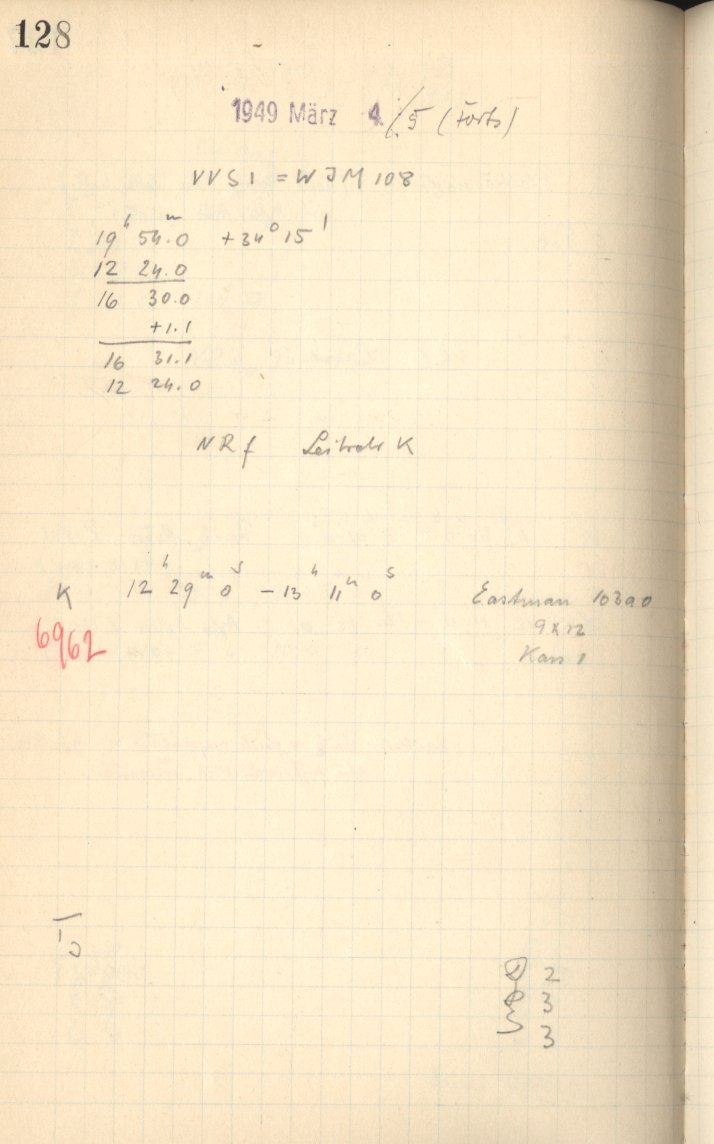 128
1949 März 4./5 (Forts)
VVS1 = WJM108
19ʰ 54.0ᵐ +34° 15'
12 24.0
16 30.0
+1.1
16 31.1
12 24.0
NRf Leitrohr K
K 12ʰ 29ᵐ 0ˢ – 13ʰ 11ᵐ 0ˢ Eastman 103a0
6962 9x12
Kass 1
2
3
3